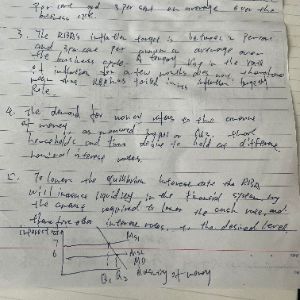 per cent and 3 per cent on average over the
business cycle.
3. The RBA's inflation target is between 2 percent
and 3 per cent per annum on average over
the business cycle. A temporary in the rate
of inflation for a few months does not
mean that RBA has failed in its inflation targeting
Role.
4. The demand for money refers to the amount
of money
households and firms desire to hold at different
interest rates.
5. To lower the equilibrium interest rate the RBA
will increase liquidity in the financial system by
the amount required to lower the cash rate, and
therefore other interest rates, to the desired level
interest rate
7
6
MS1
MS2
MD
Q1 Q2 Quantity of money